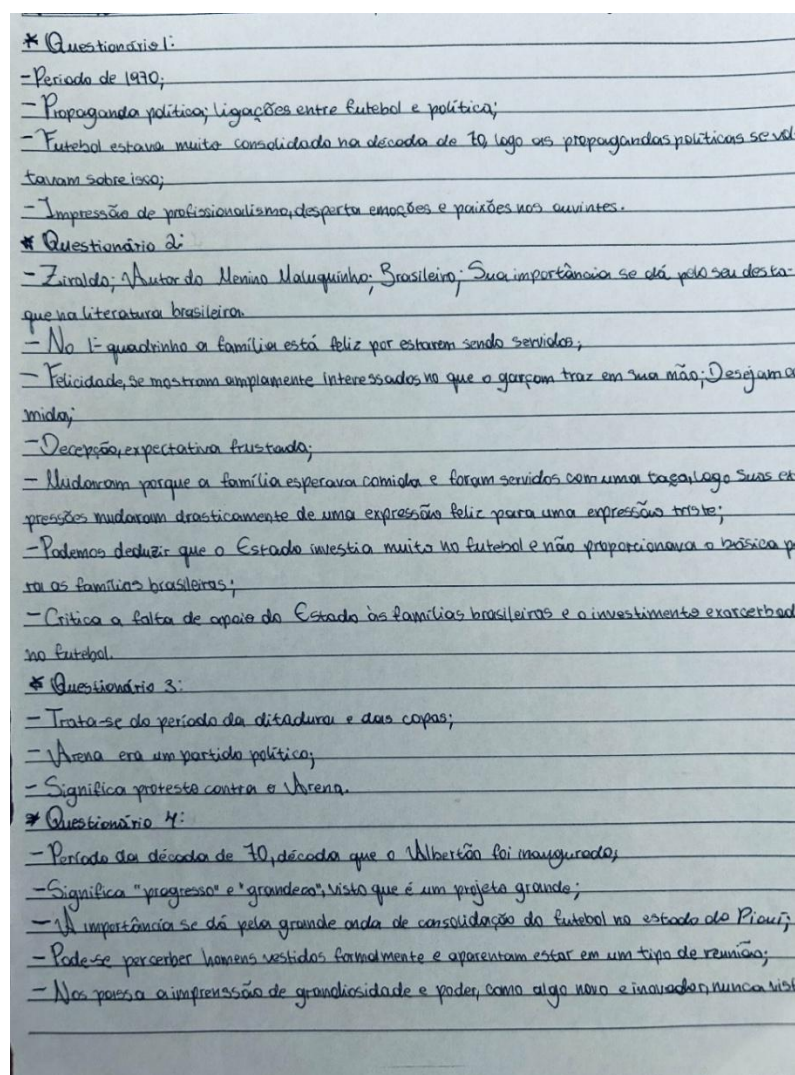 * Questionário 1:
- Período de 1970;
- Propaganda política; ligações entre futebol e política;
- Futebol estava muito consolidado na década de 70, logo as propagandas políticas se vol
tavam sobre isso;
- Impressão de profissionalismo, desperta emoções e paixões nos ouvintes.
* Questionário 2:
- Ziraldo; Autor do Menino Maluquinho; Brasileiro; Sua importância se dá pelo seu desta-
que na literatura brasileira.
- No 1º quadrinho a família está feliz por estarem sendo servidos;
- Felicidade, se mostram amplamente interessados no que o garçom traz em sua mão; Desejam a
mida;
- Decepção, expectativa frustada;
- Mudaram porque a família esperava comida e foram servidos com uma taça, logo suas ex
pressões mudaram drasticamente de uma expressão feliz para uma expressão triste;
- Podemos deduzir que o Estado investia muito no futebol e não proporcionava o básico p
ra as famílias brasileiras;
- Critica a falta de apoio do Estado às famílias brasileiras e o investimento exarcerbad
no futebol.
* Questionário 3:
- Trata-se do período da ditadura e das copas;
- Arena era um partido político;
- Significa protesto contra o Arena.
* Questionário 4:
- Período da década de 70, década que o Albertão foi inaugurado;
- Significa "progresso" e "grandeza", visto que é um projeto grande;
- A importância se dá pela grande onda de consolidação do futebol no estado do Piauí;
- Pode-se percerber homens vestidos formalmente e aparentam estar em um tipo de reunião;
- Nos passa a imprenssão de grandiosidade e poder, como algo novo e inovador, nunca vist